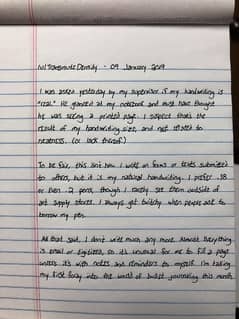 09 January 2019
I was asked yesterday by my supervisor if my handwriting is
"real." He glanced at my notebook and must have thought
he was seeing a printed page. I suspect that's the
result of my handwriting size, and not related to
neatness. (or lack thereof)
To be fair, this isn't how I write on forms or texts submitted
to others, but it is my natural handwriting. I prefer .38
or even .2 pens, though I rarely see them outside of
art supply stores. I always get twitchy when people ask to
borrow my pen.
All that said, I don't write much any more. Almost everything
is email or digitized, so it's unusual for me to fill a page
unless it's with notes and reminders to myself. I'm taking
my first foray into the world of bullet journaling this month.